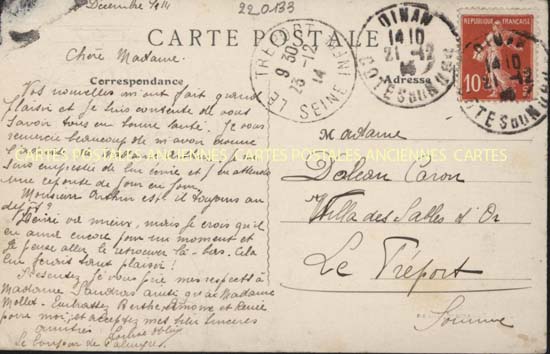 Décembre 1914
220133
CARTE POSTALE
Correspondance
Adresse
LE TREPORT
SEINE INF
9 30
13-12
14
DINAN
14 10
21-12
COTES DU NORD
REPUBLIQUE FRANÇAISE
10
DINAN
14 10
21-12
COTES DU NORD
Chère Madame.
Vos nouvelles m'ont fait grand
plaisir et je suis contente de vous
savoir tous en bonne santé. Je vous
remercie beaucoup de m'avoir donné
l'adresse
et j'en attends
une réponse de jour en jour.
Monsieur Arthur est-il toujours au
dépôt ?
Désiré va mieux, mais je crois qu'il
en aura encore pour un moment et
je pense aller le retrouver là-bas. Cela
lui ferait tant plaisir !
Présentez je vous prie mes respects à
Madame ainsi qu'à Madame
Mollet - Embrassez Berthe, Simone et Renée
pour moi, et acceptez mes plus sincères
amitiés
Le bonjour de
Madame
Doléan Caron
Villa des Sables d'Or
Le Tréport
Somme
CARTES POSTALES ANCIENNES CARTES POSTALES ANCIENNES CARTES